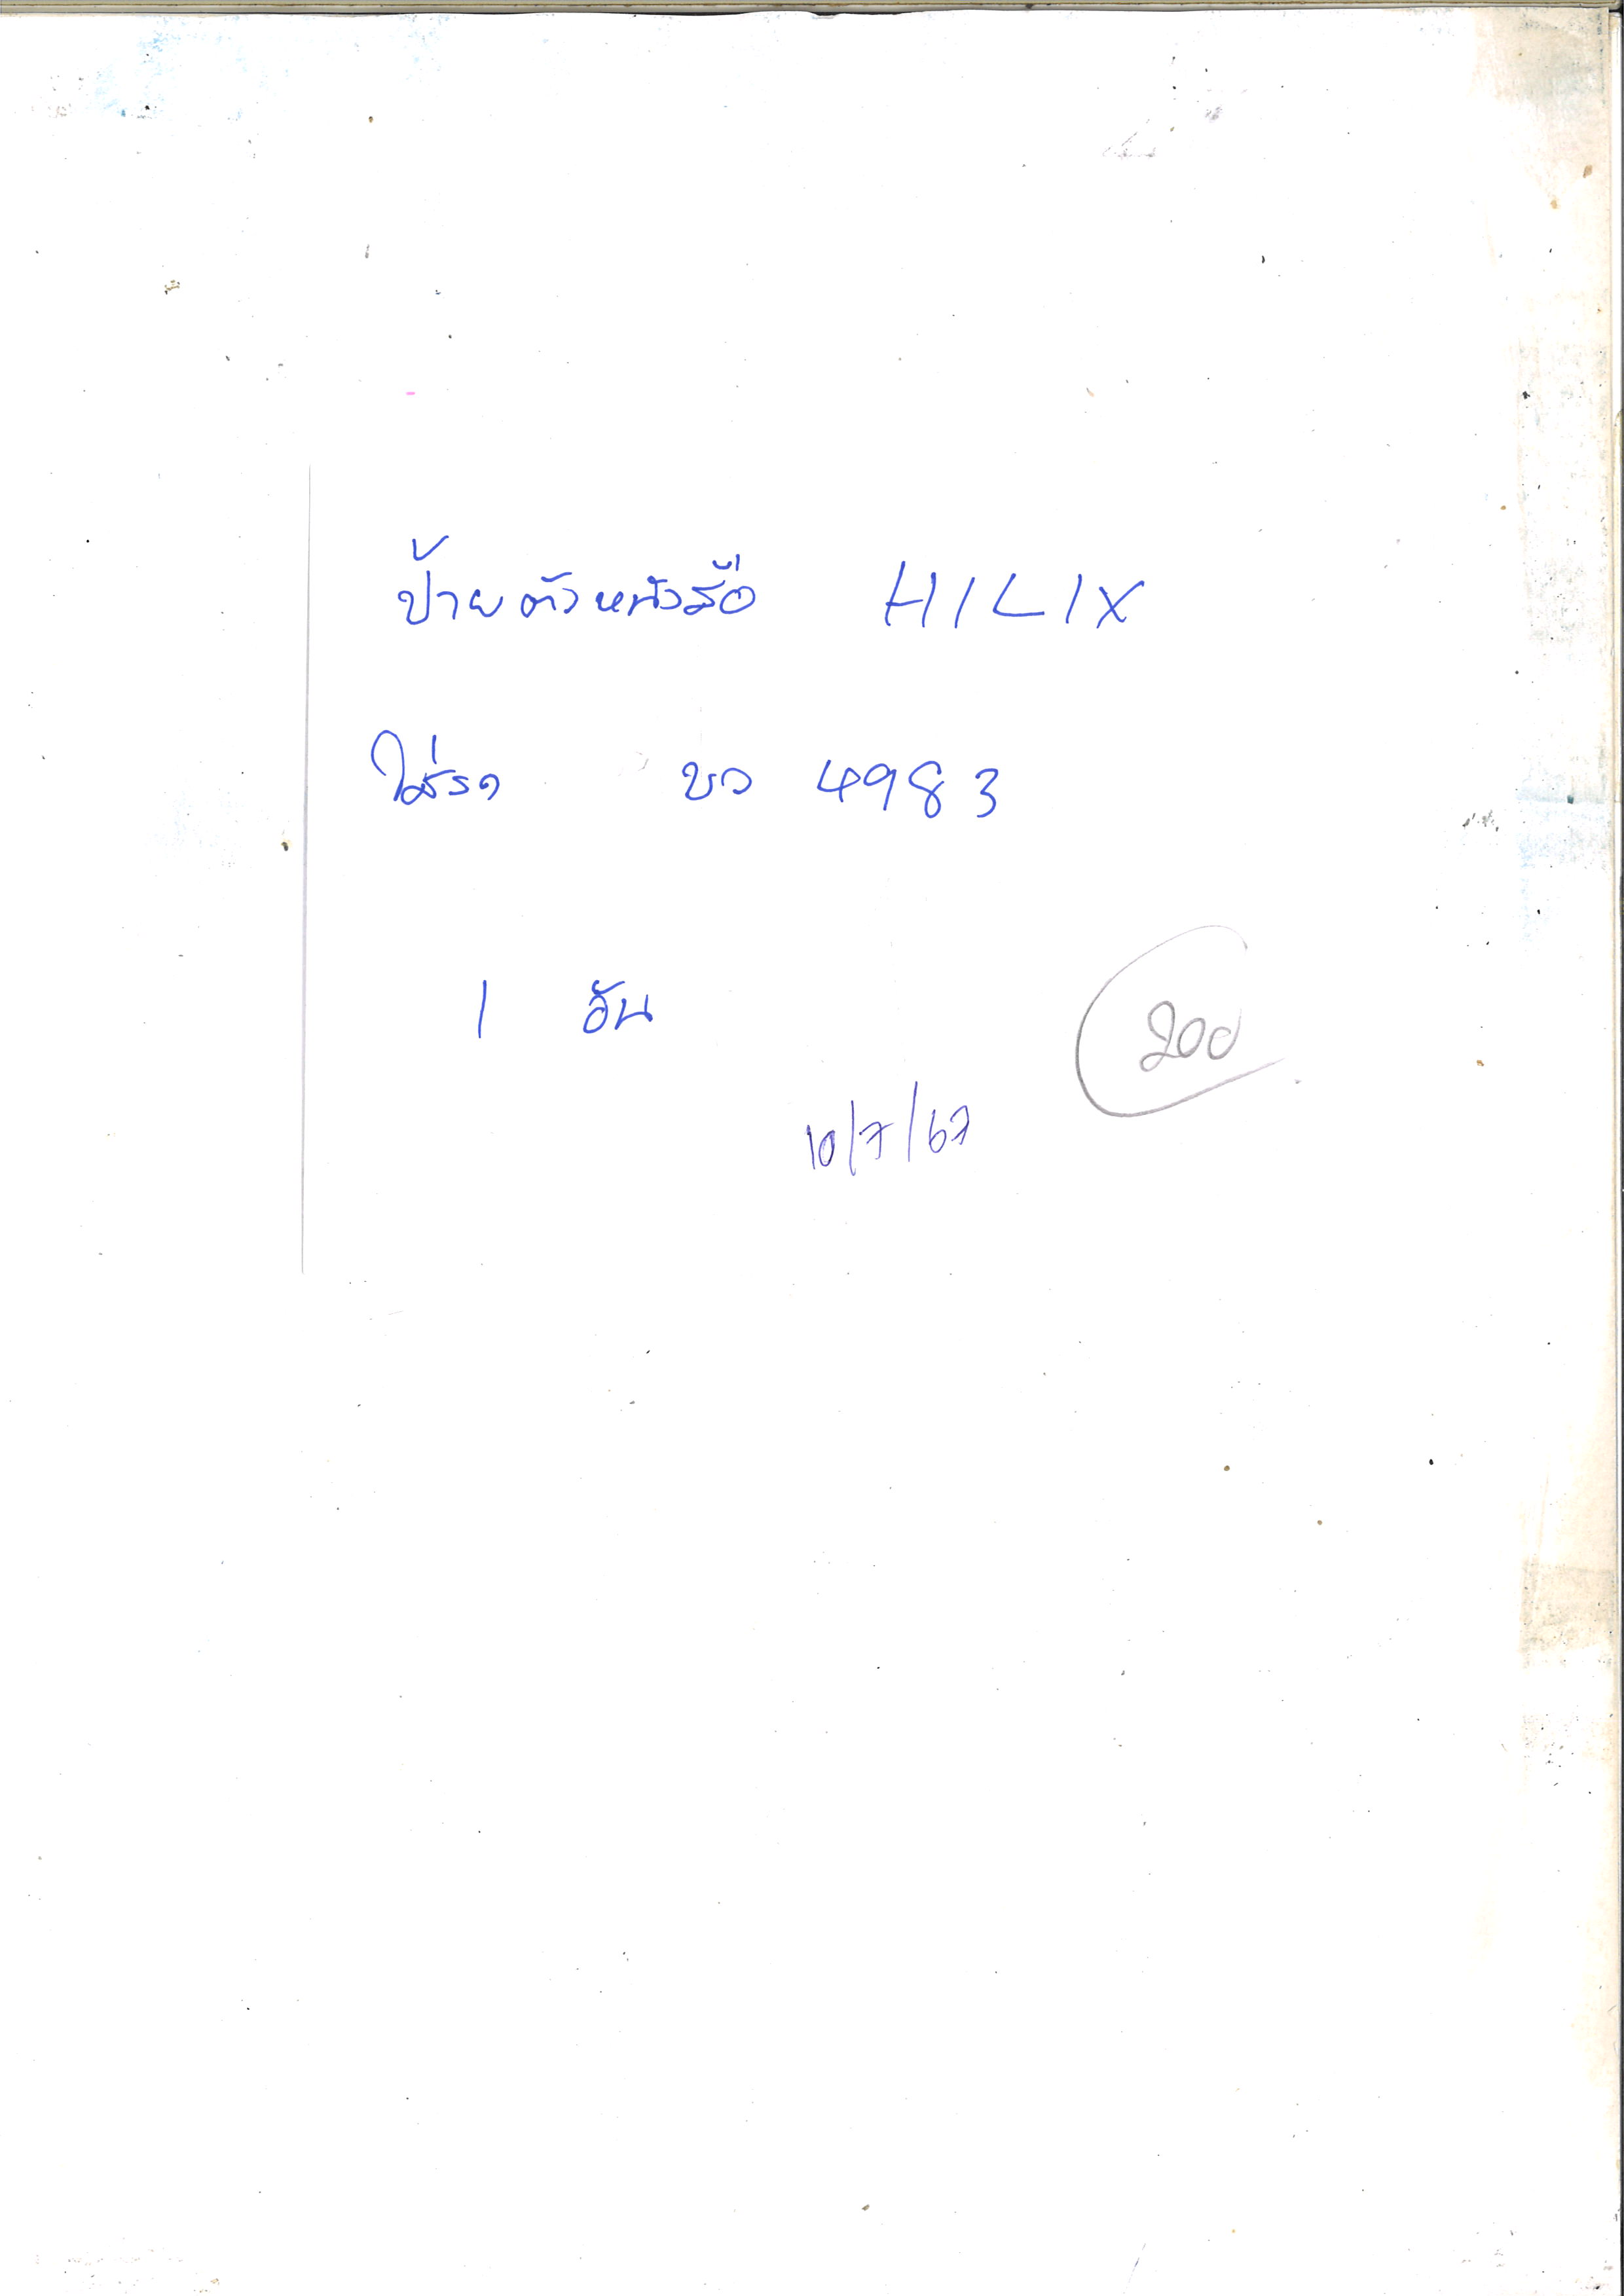 ป้ายตัวหนังสือ HILIX
ใส่รถ บว 4983
1 อัน
200
10/7/67